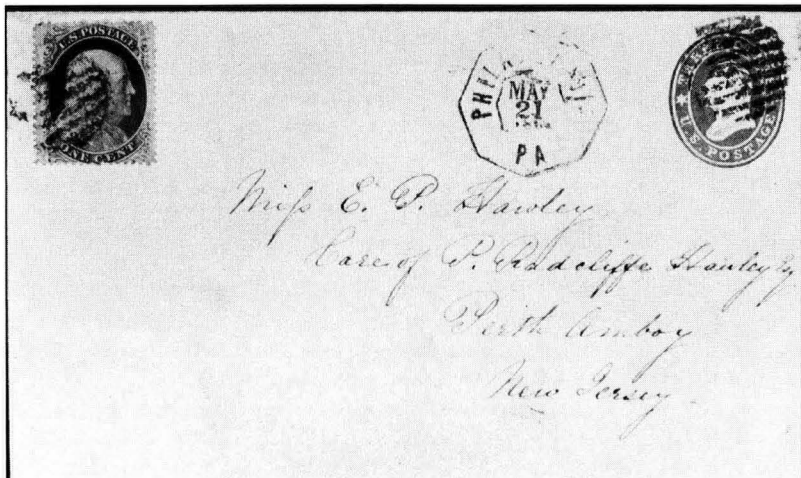 U.S. POSTAGE
ONE CENT
MAY
21
PA
U.S. POSTAGE
Miss E. P. Hawley
Care of P. Radcliffe Hawley Esq
Perth Amboy
New Jersey